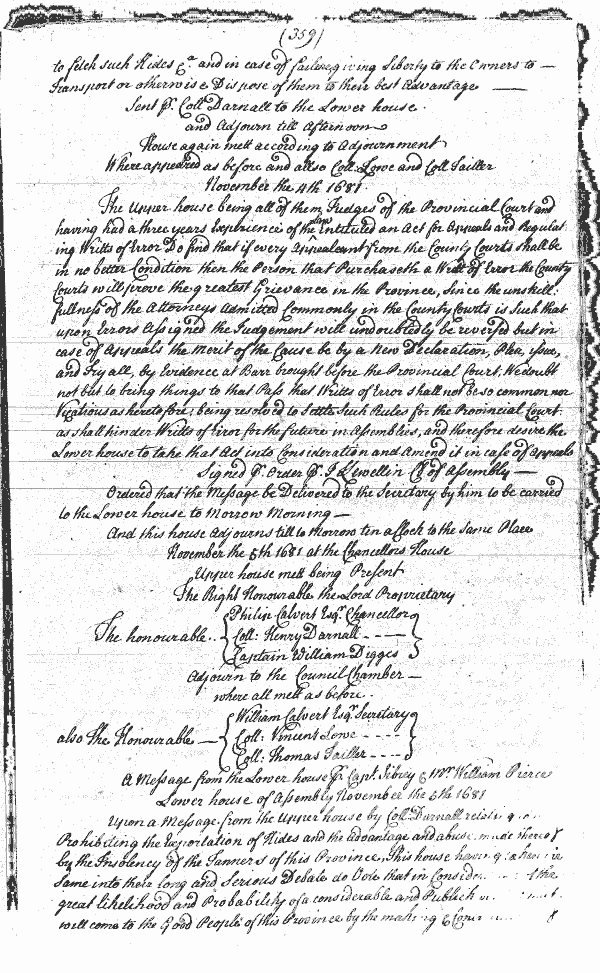 (359)
to fetch such Hides &ca and in case of failure giving Liberty to the Owners to
Transport or otherwise Dispose of them to their best Advantage
Sent pr. Coll Darnall to the Lower house.
and Adjourn till Afternoon
House again mett according to Adjournment
Where appeared as before and allso Coll: Lowe and Coll Tailler
November the 4th 1681.
The Upper house being all of them Judges of the Provincial Court and
having had a three years Experience of the Law Entituled an Act for Appeals and Regulat
ing Writts of Error Do find that if every Appealeant from the County Courts shall be
in no better Condition then the Person that Purchaseth a Writt of Error the County
Courts will prove the greatest Grievance in the Province, Since the unskill-
fullness of the Attorneys Admitted Commonly in the County Courts is Such that
upon Errors Assigned the Judgement will undoubtedly be reversed but in
case of Appeals the Merit of the Cause be by a New Declaration, Plea, issue,
and Tryall, by Evidence at Barr brought before the Provincial Court, We doubt
not but to bring things to that Pass that Writts of Error shall not be so common nor
Vexatious as heretofore; being resolved to Settle Such Rules for the Provincial Court
as shall hinder Writts of Error for the future in Assemblies, and therefore desire the
Lower house to take that Act into Consideration and Amend it in case of Appeals
Signed pr. Order pr. J Lewellin Clk of Assembly
Ordered that the Message be Delivered to the Secretary by him to be carried
to the Lower house to Morrow Morning
And this house Adjourns till to Morrow ten a Clock to the Same Place
November the 5th 1681 at the Chancellors House
Upper house mett being Present
The Right Honourable the Lord Proprietary
The honourable. { Philip Calvert Esqr. Chancellor }
Coll: Henry Darnall
Captain William Digges
Adjourn to the Council Chamber
where all mett as before.
also The Honourable { William Calvert Esqr. Secretary }
Coll: Vincent Lowe
Coll: Thomas Tailler
A Message from the Lower house pr. Capt. Sibrey & Mr. William Pierce
Lower house of Assembly November the 5th 1681
Upon a Message from the Upper house by Coll: Darnall relating
Prohibiting the Exportation of Hides and the advantage and abuse made thereof
by the Insolency of the Tanners of this Province, This house having taken
Same into their long and Serious Debate do Vote that in the
great likelihood and Probability of a considerable and Publick
will come to the Good People of this Province by the making &